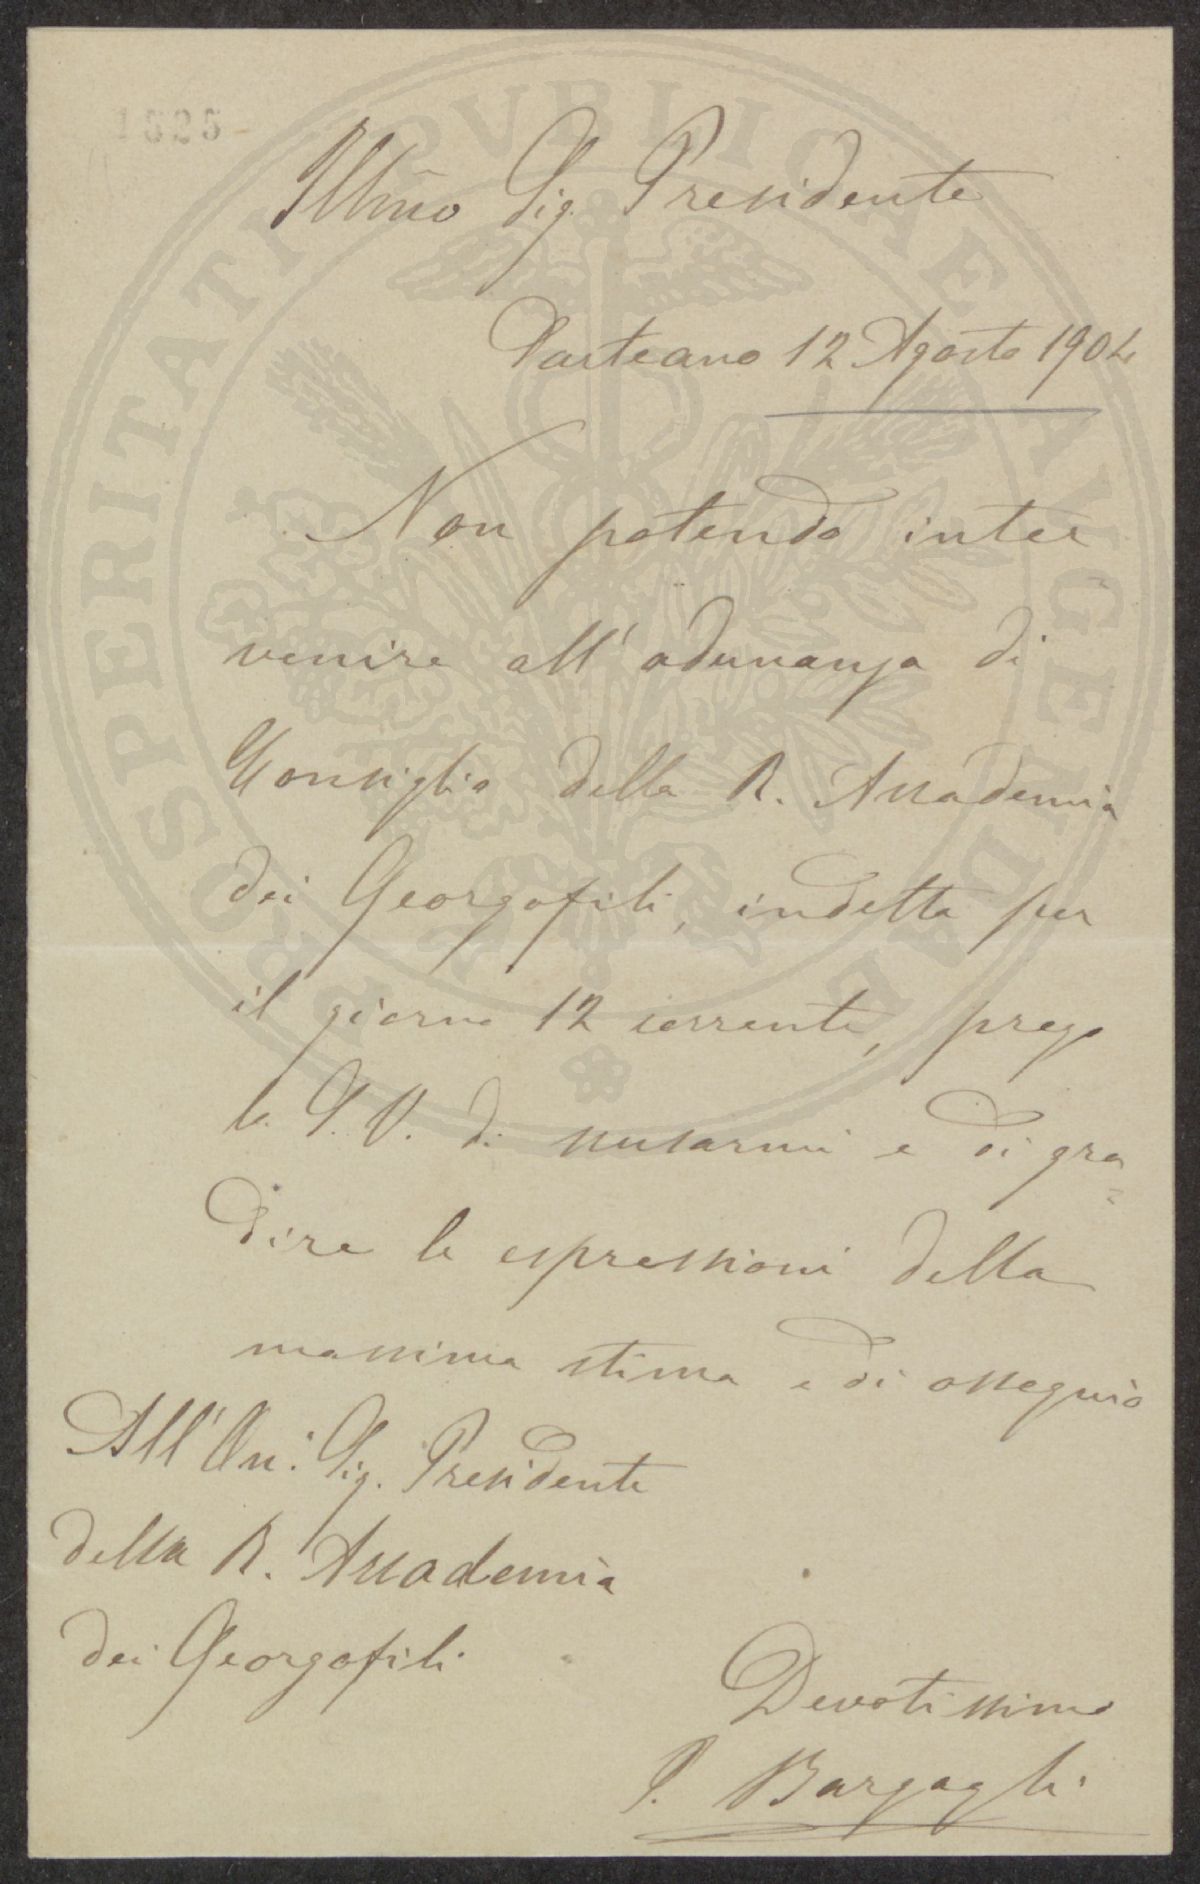 1525
Illm̃o Sig. Presidente
Sarteano 12 Agosto 1904
Non potendo inter
venire all'adunanza di
Consiglio della R. Accademia
dei Georgofili, indetta per
il giorno 12 corrente, prego
la S. V. di scusarmi e di gra
dire le espressioni della
massima stima e di ossequio
All'On: Sig. Presidente
della R. Accademia
dei Georgofili
Devotissimo
P. Bargagli
PROSPERITATI PVBLICAE AVGENDAE